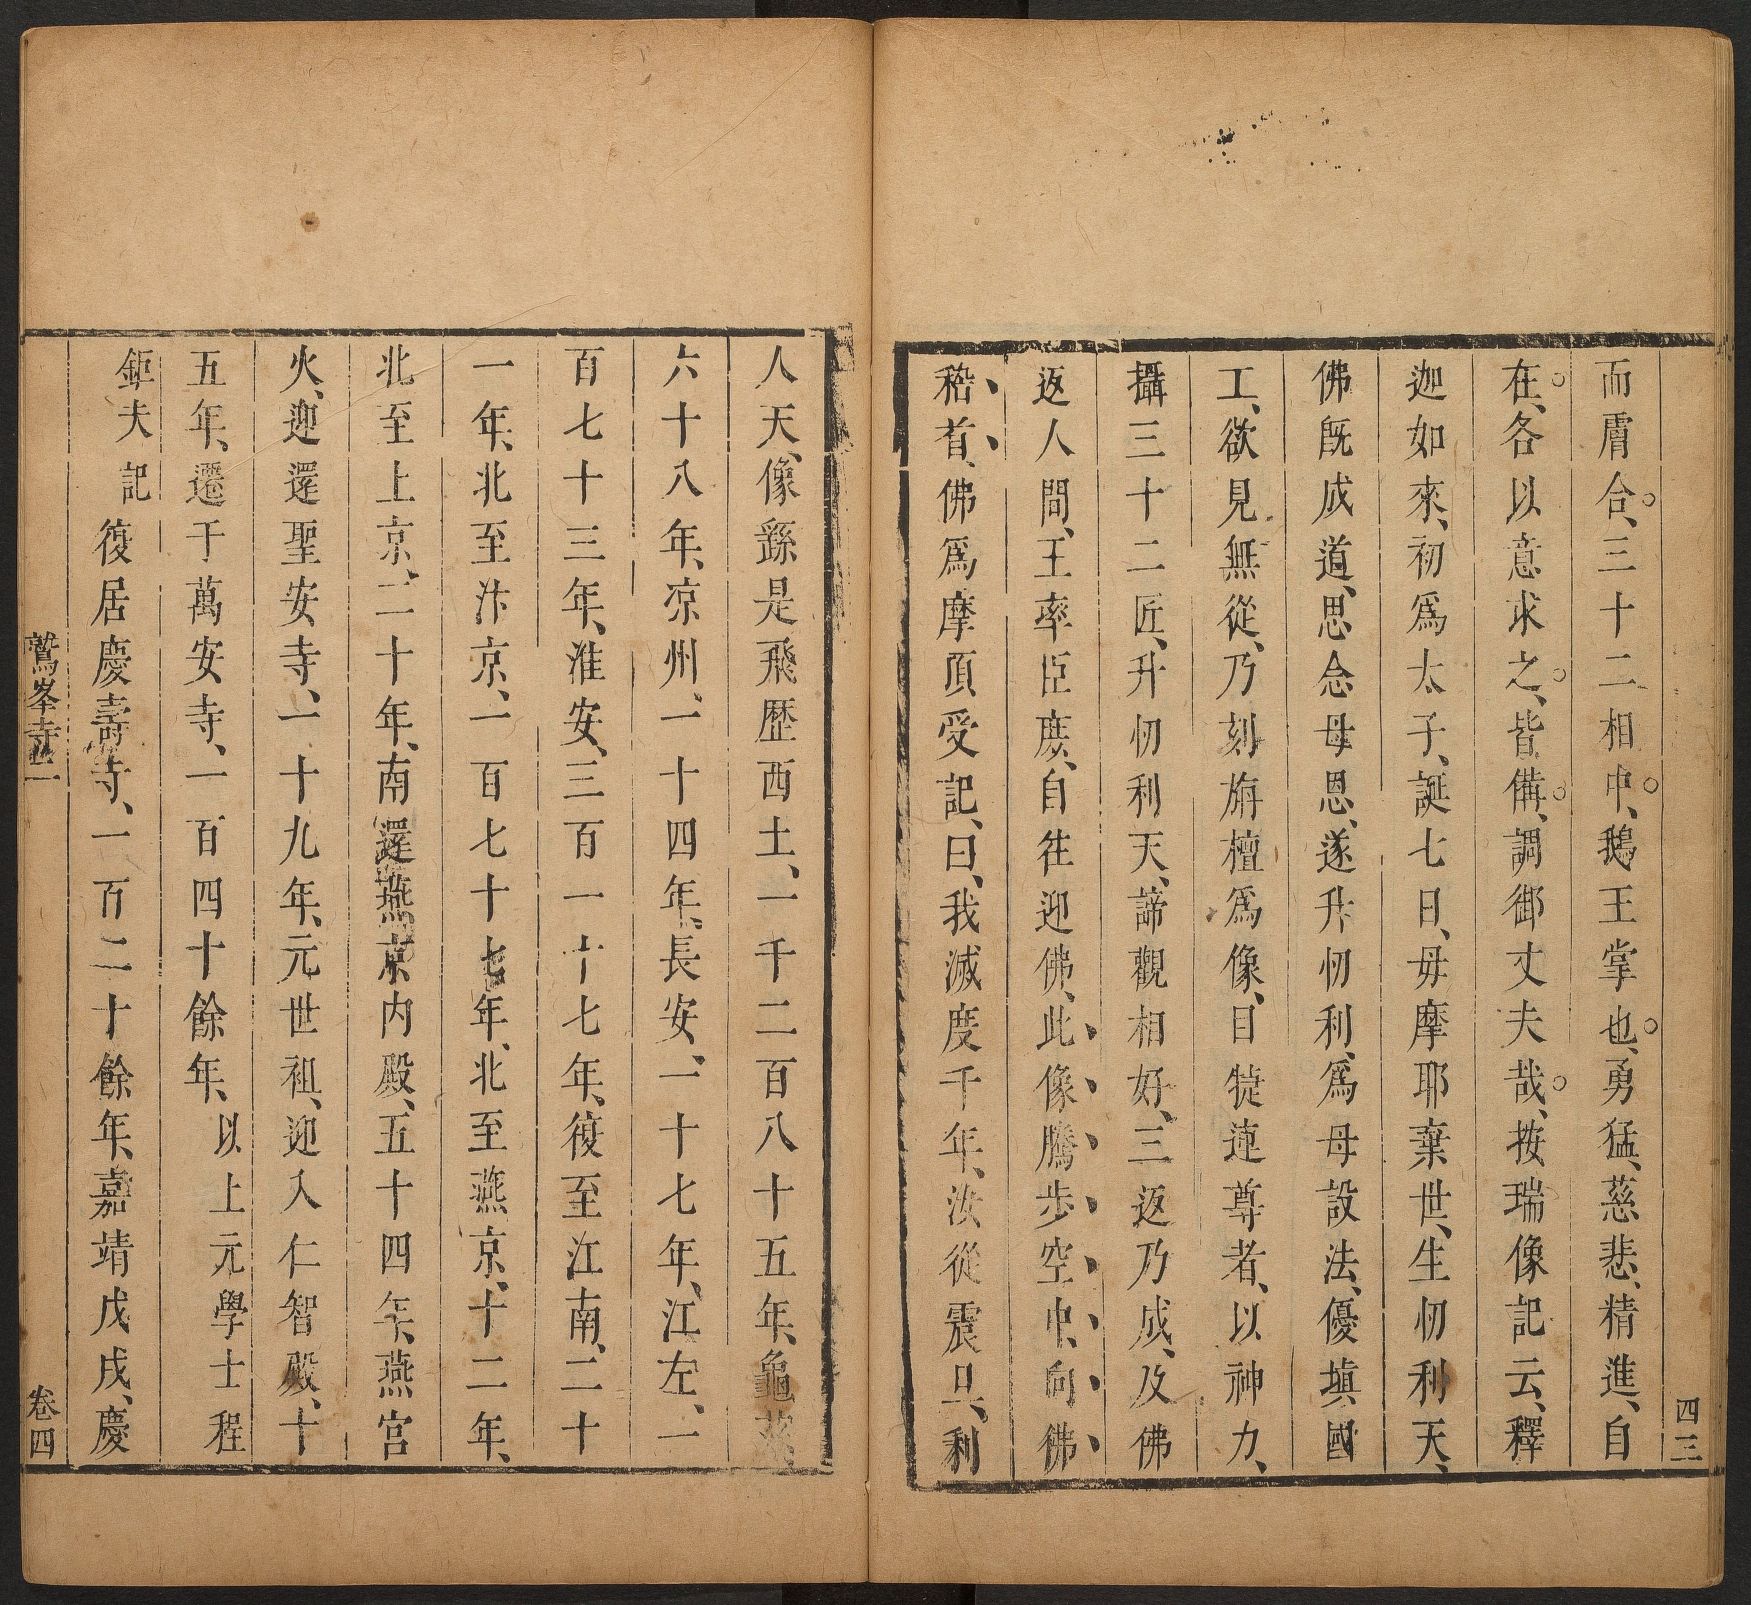 而膚合、三十二相中、鵝王掌也、勇猛、慈悲、精進、自
在、各以意求之、皆備、調御丈夫哉、按瑞像記云、釋
迦如來、初爲太子、誕七日、母摩耶棄世、生忉利天、
佛既成道、思念母恩、遂升忉利、爲母設法、優塡國
工、欲見無從、乃刻旃檀爲像、目犍連尊者、以神力、
攝三十二匠、升忉利天、諦觀相好、三返乃成、及佛
返人間、王率臣庶、自往迎佛、此像騰步空中、向佛
稽首、佛爲摩頂受記、曰、我滅度千年、汝從震旦、利
四三
人天、像繇是飛歷西土、一千二百八十五年、龜茲、
六十八年、凉州、一十四年、長安、一十七年、江左、一
百七十三年、淮安、三百一十七年、復至江南、二十
一年、北至汴京、一百七十七年、北至燕京、十二年、
北至上京、二十年、南還燕京内殿、五十四年、燕宮
火、迎還聖安寺、一十九年、元世祖、迎入仁智殿、十
五年、遷千萬安寺、一百四十餘年、以上元學士程
鉅夫記 復居慶壽寺、一百二十餘年、嘉靖戊戌、慶
鷲峯寺 二
卷四